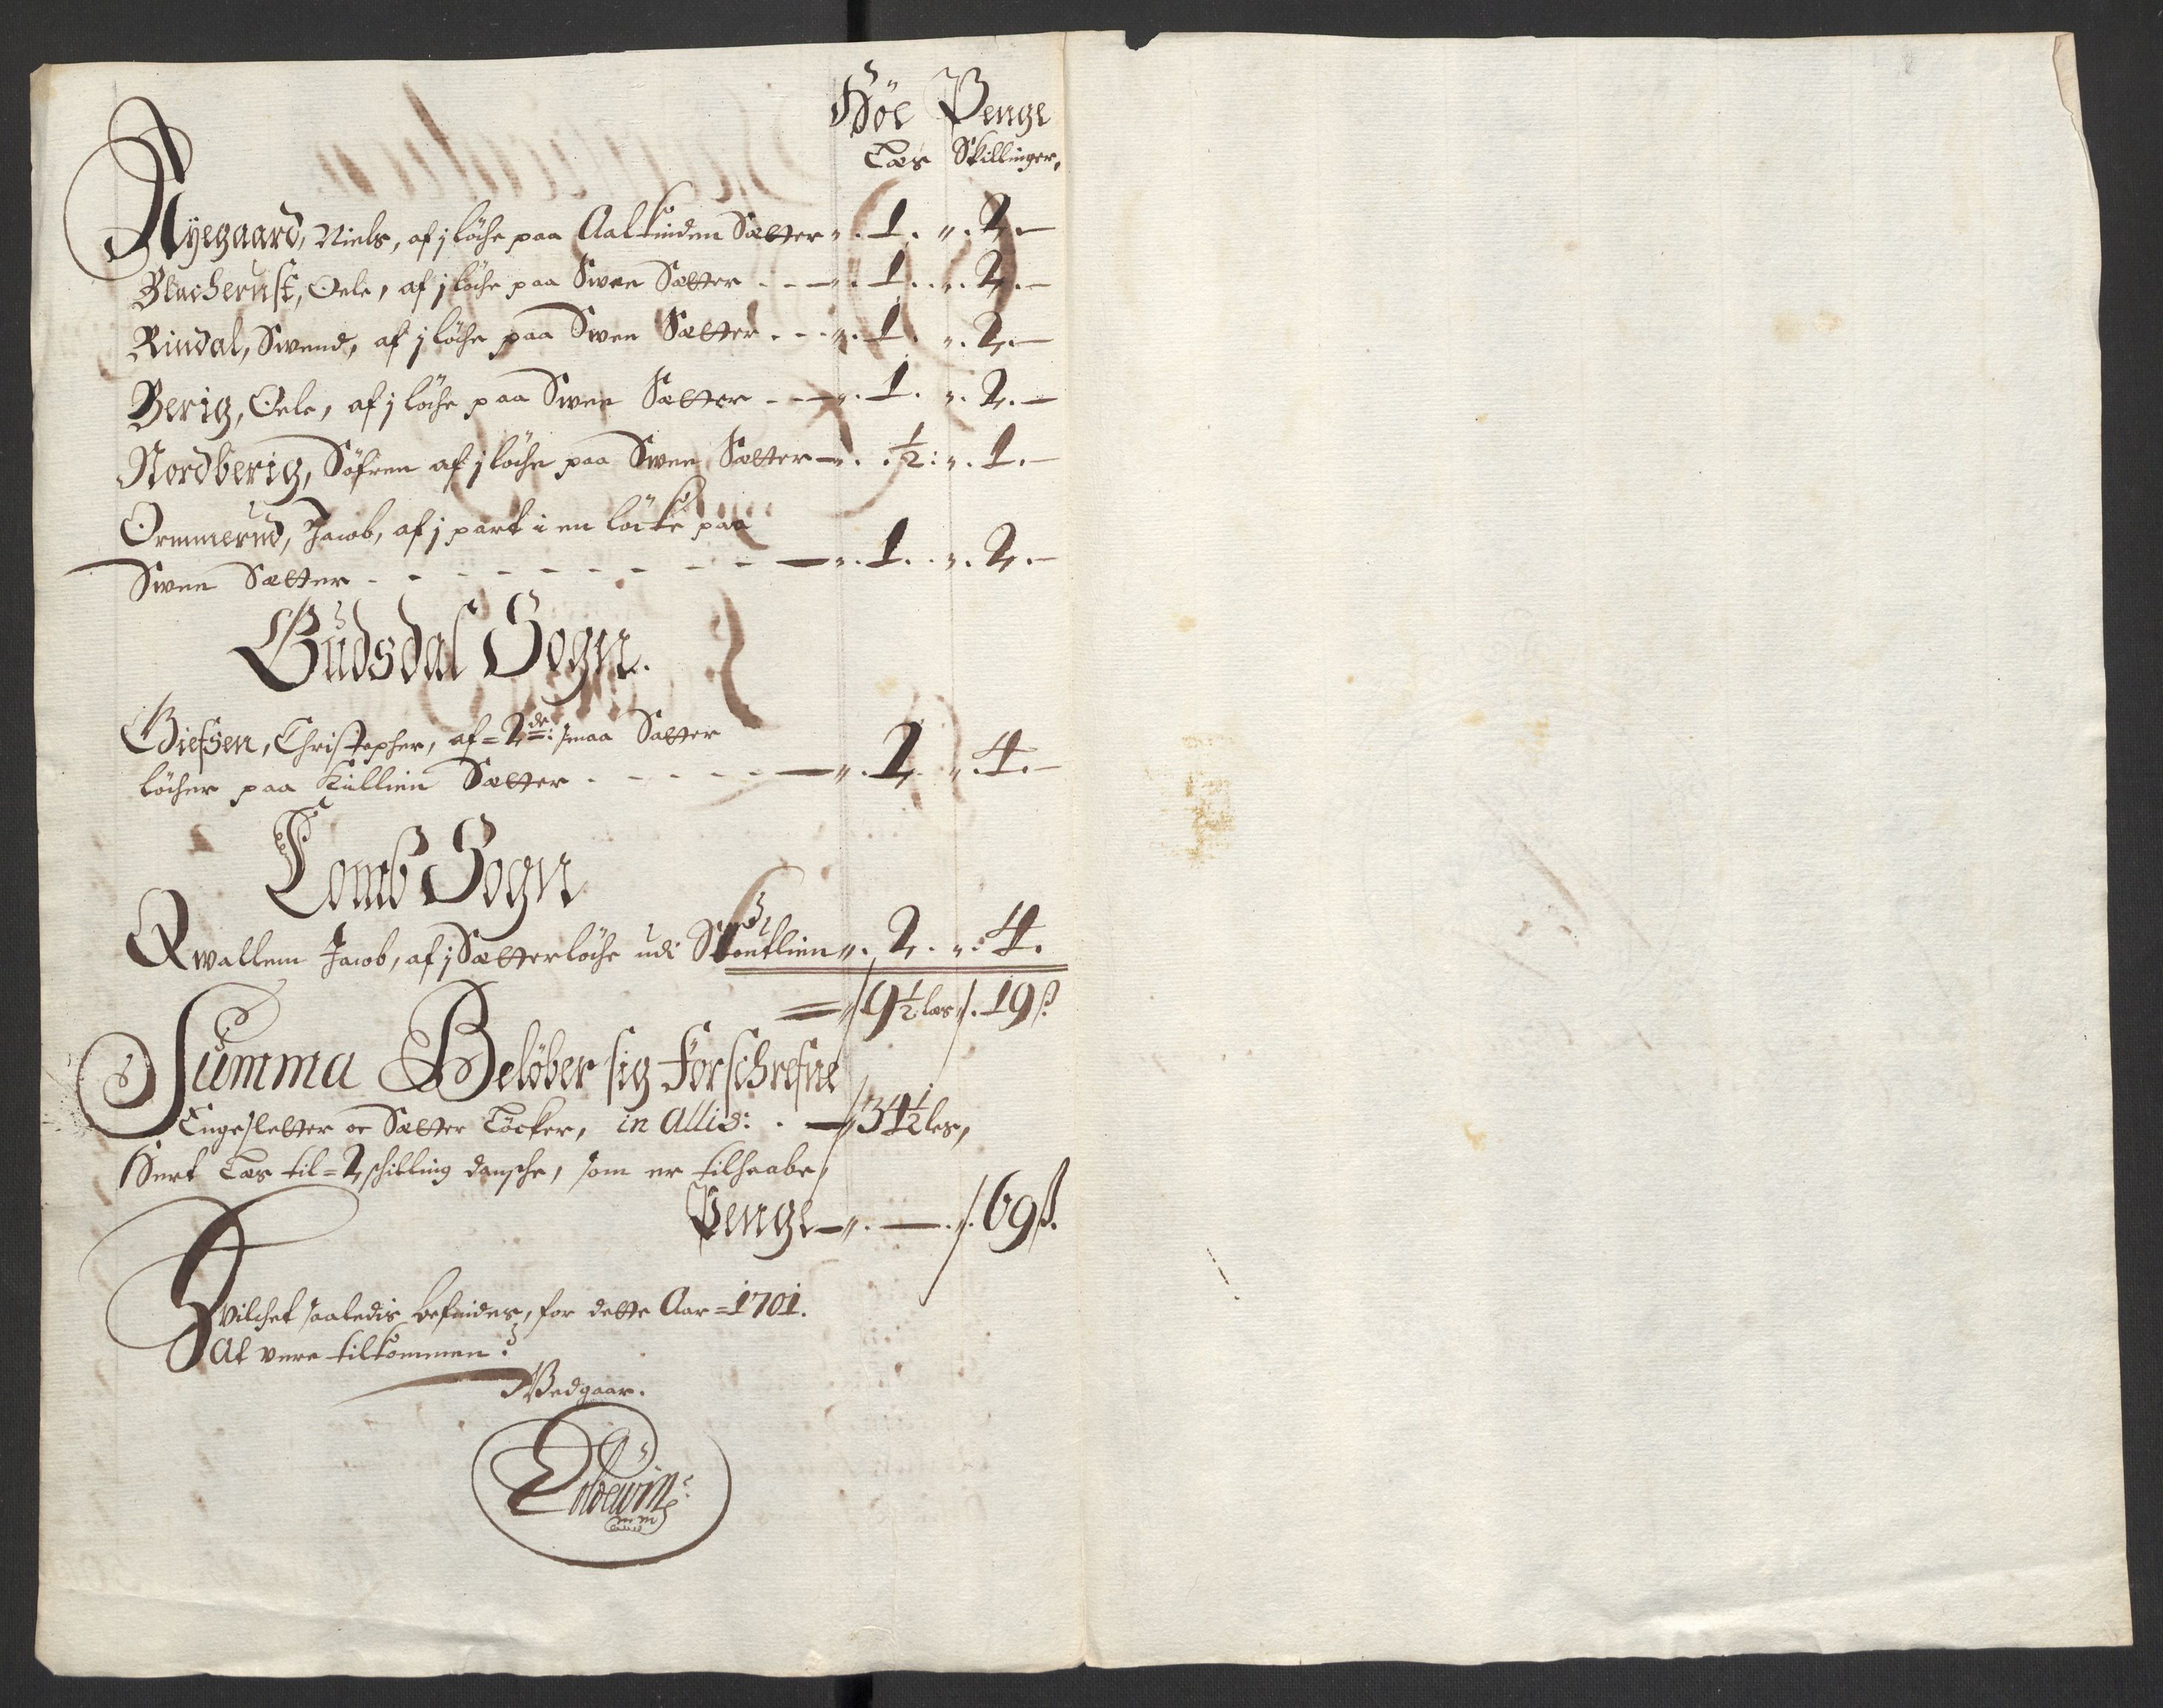 Höe Penge
Læs Skillinger,
Nyegaard, Niels, af j löche paa Aalkinden Sætter „. 1. „. 2. —
Blacherust, Oele, af j löche paa Swee Sætter - - — „. 1. . „. 2. —
Rindal, Swend, af j löche paa Swee Sætter - - - „. 1. „. 2. —
Berig, Oele, af j löche paa Swee Sætter - - — „. 1. „. 2. —
Nordberig, Söfren af j löche paa Swee Sætter — „. ½: „. 1. —
Ormmerud, Jacob, af j part i en löcke paa
Swee Sætter - - - - - - - - - — „. 1. . „. 2. —
Gudsdal Sogn.
Giefsen, Christopher, af = 2de: smaa Sætter
löcher paa Kullien Sætter - - - - - — „. 2. „. 4. —
Lomb Sogn
Qwallem Jacob, af j Sætterlöche udi Skontlien „. 2. „: 4.
= 9½ læs /. 19 ß.
Summa Belöber sig Forschrefne
Engesletter oc Sætter Löcker, in Allis: . — 34½ les,
Hvert Læs til = 2 schilling dansche, som er tilhaabe,
Penge — „. — . /. 69 ß.
Hvilchet saaledis befindes, for dette Aar = 1701.
At vere tilkommen:
Vedgaar.
Eoldewin:
mm